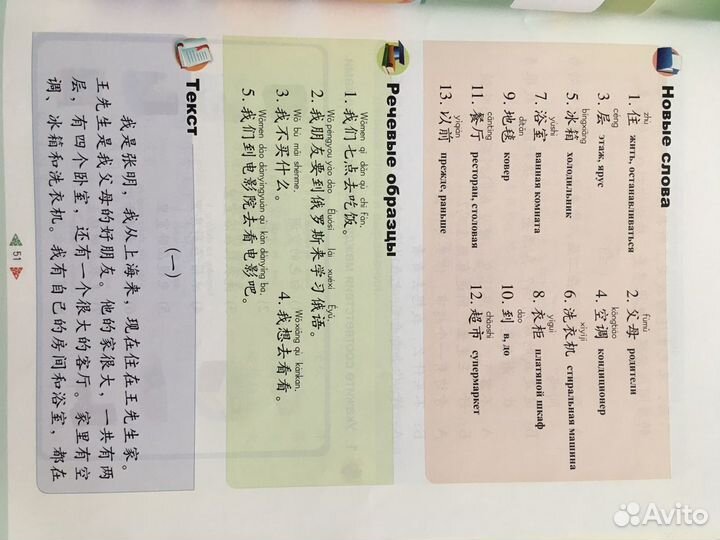 Новые слова
zhù
1. 住 жить, останавливаться
fùmǔ
2. 父母 родители
céng
3. 层 этаж, ярус
kōngtiáo
4. 空调 кондиционер
bīngxiāng
5. 冰箱 холодильник
xǐyījī
6. 洗衣机 стиральная машина
yùshì
7. 浴室 ванная комната
yīguì
8. 衣柜 платяной шкаф
dìtǎn
9. 地毯 ковер
dào
10. 到 в, до
cāntīng
11. 餐厅 ресторан, столовая
chāoshì
12. 超市 супермаркет
yǐqián
13. 以前 прежде, раньше
Речевые образцы
Wǒmen qī diǎn qù chī fàn.
1. 我们七点去吃饭。
Wǒ péngyou yào dào Éluósī lái xuéxí Éyǔ.
2. 我朋友要到俄罗斯来学习俄语。
Wǒ bù mǎi shénme.
3. 我不买什么。
Wǒ xiǎng qù kànkan.
4. 我想去看看。
Wǒmen dào diànyǐngyuàn qù kàn diànyǐng ba.
5. 我们到电影院去看电影吧。
Текст
(一)
我是张明，我从上海来，现在住在王先生家。
王先生是我父母的好朋友。他的家很大，一共有两
层，有四个卧室，还有一个很大的客厅。家里有空
调、冰箱和洗衣机。我有自己的房间和浴室，都在
51
Avito